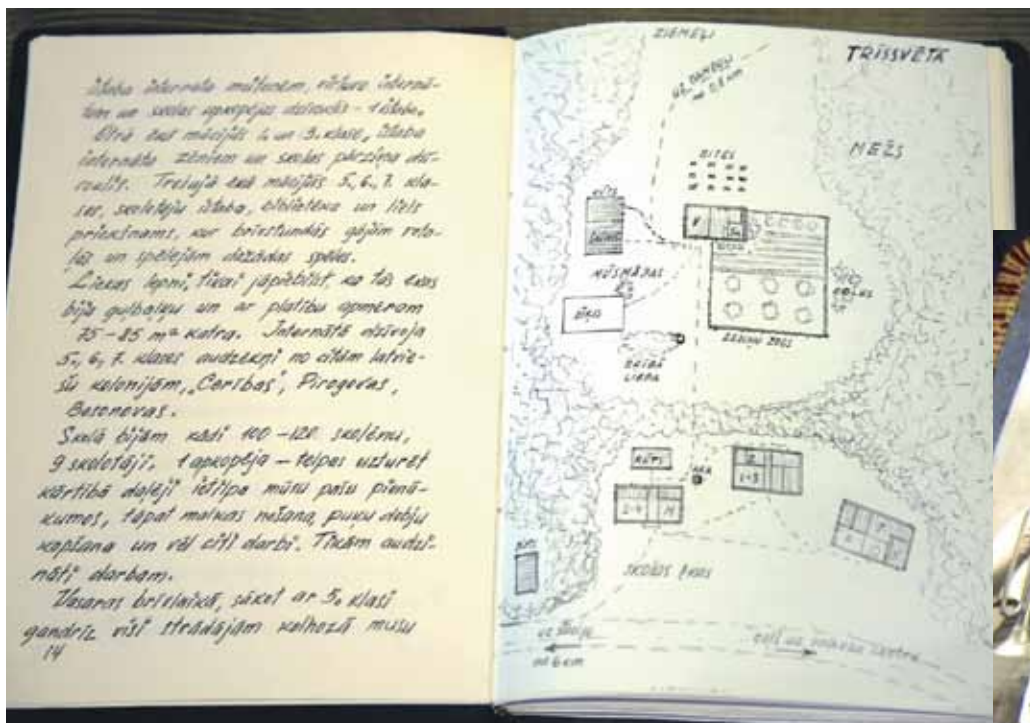 istaba internāta mātenēm, virtuve internā-
tam un skolas apkopējas dzīvoklis - 1 istaba.
Otrā ēkā mācījās 1. un 3. klase, istaba
internāta zēniem un skolas pārziņa dzī-
voklis. Trešajā ēkā mācījās 5., 6., 7. kla-
ses, skolotāju istaba, bibliotēka un liels
priekšnams, kur brīvstundās gājām rota-
ļās un spēlējām dažādas spēles.
Liekas lepni, tikai jāpiebilst, ka tās ēkas
bija guļbaļķu un ar platību apmēram
75-85 m² katra. Internātā dzīvoja
5., 6., 7. klases audzēkņi no citām latvie-
šu kolonijām, "Cerības", Pirogovas,
Bosonovas.
Skolā bijām kādi 100-120 skolēnu,
9 skolotāji, 1 apkopēja - telpas uzturēt
kārtībā daļēji ietilpa mūsu pašu pienā-
kumos, tāpat malkas nešana, puķu dobju
kopšana un vēl citi darbi. Tikām audzi-
nāti darbam.
Vasaras brīvlaikā, sākot ar 5. klasi
gandrīz visi strādājām kolhozā mūsu
14
ZIEMEĻI
TRĪSSVĒTA
UZ
0,5 km
MEŽS
BITES
KŪTS
MŪSMĀJAS
DĪĶIS
LIEPA
KŪTS
AKA
2
1-3
SKOLAS ĒKAS
6 km
CEĻŠ UZ